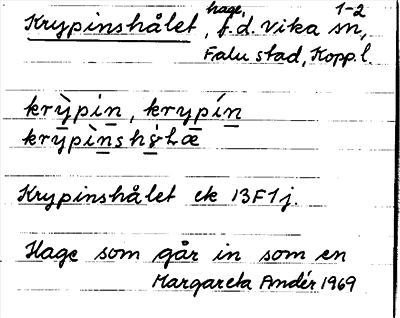 hage, 1-2
Krypinshålet, f.d. Vika sn,
Falu stad, Kopp.l.
krỳpín, krypín
krypìnshɷ̀Læ
Krypinshålet ek 13F1j.
Hage som går in som en
Margareta Andér 1969